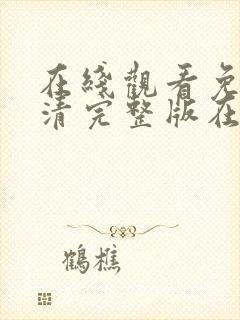 在綫觀看免
清完整版在
鶴樵